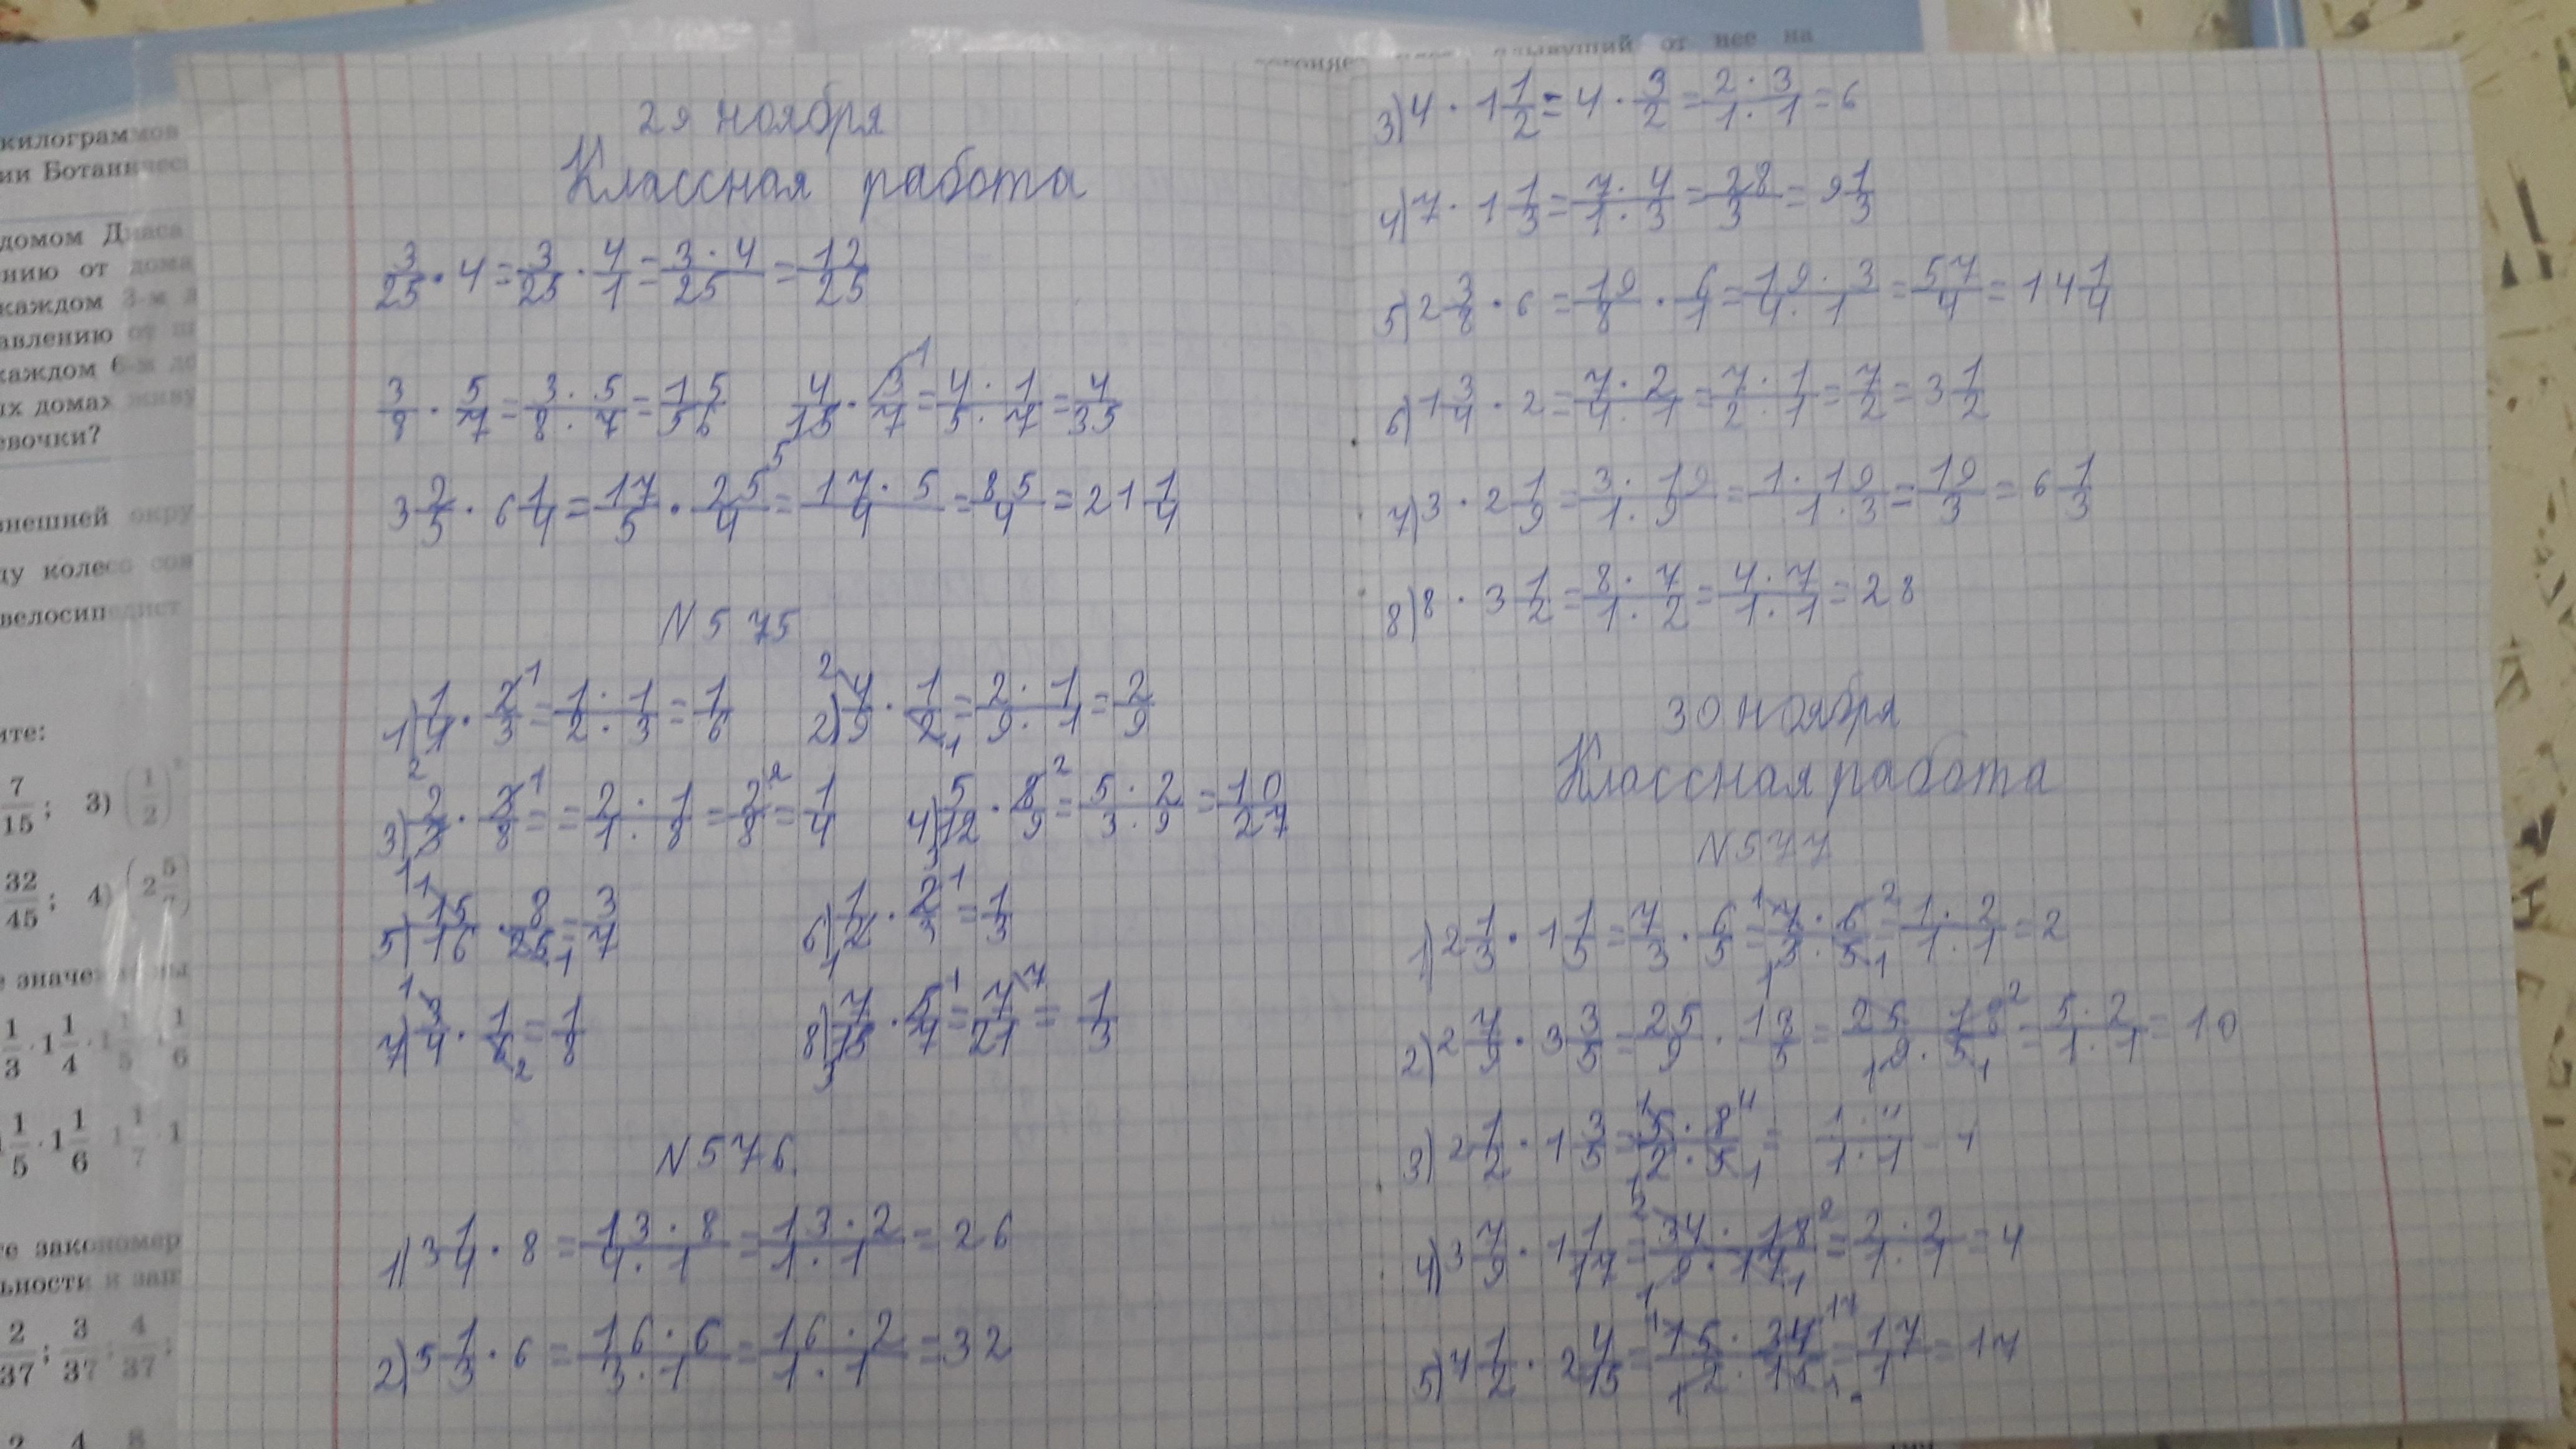 килограммов
ии Ботаничес
домом Диаса
нию от дома
каждом 3-м
авлению от
каждом 6-м до
ых домах живу
евочки?
внешней окру
ду колесо сов
велосипедист
ите:
7/15; 3) (1/2)
32/45; 4) (2 5/7)
е значе
1/3 · 1 1/4 · 1 1/5 · 1/6
1/5 · 1 1/6 · 1 1/7 · 1
те закономер
ьности и зап
2/37; 3/37; 4/37;
2 4 8
от нее на
29 ноября
Классная работа
3/25 · 4 = 3/25 · 4/1 = 3 · 4/25 = 12/25
3/8 · 5/7 = 3 · 5/8 · 7 = 15/56 4/15 · 3/7 = 4 · 1/5 · 7 = 4/35
3 2/5 · 6 1/4 = 17/5 · 25/4 = 17 · 5/4 = 85/4 = 21 1/4
N 575
1) 1/4 · 2/3 = 1 · 1/2 · 3 = 1/6 2) 4/9 · 1/2 = 2 · 1/9 · 1 = 2/9
3) 2/3 · 3/8 = = 2 · 1/1 · 8 = 2/8 = 1/4 4) 5/12 · 8/9 = 5 · 2/3 · 9 = 10/27
5) 15/16 · 8/25 = 3/7 6) 1/2 · 2/3 = 1/3
7) 3/4 · 1/6 = 1/8 8) 7/15 · 5/7 = 7/21 = 1/3
N 576
1) 3 1/4 · 8 = 13 · 8/4 · 1 = 13 · 2/1 · 1 = 26
2) 5 1/3 · 6 = 16 · 6/3 · 1 = 16 · 2/1 · 1 = 32
3) 4 · 1 1/2 = 4 · 3/2 = 2 · 3/1 · 1 = 6
4) 7 · 1 1/3 = 7 · 4/1 · 3 = 28/3 = 9 1/3
5) 2 3/8 · 6 = 19/8 · 6/1 = 19 · 3/4 · 1 = 57/4 = 14 1/4
6) 1 3/4 · 2 = 7 · 2/4 · 1 = 7 · 1/2 · 1 = 7/2 = 3 1/2
7) 3 · 2 1/9 = 3 · 19/1 · 9 = 1 · 19/1 · 3 = 19/3 = 6 1/3
8) 8 · 3 1/2 = 8 · 7/1 · 2 = 4 · 7/1 · 1 = 28
30 ноября
Классная работа
N 577
1) 2 1/3 · 1 1/5 = 7/3 · 6/5 = 7 · 6/3 · 5 = 1 · 2/1 · 1 = 2
2) 2 7/9 · 3 3/5 = 25/9 · 18/5 = 25 · 18/9 · 5 = 5 · 2/1 · 1 = 10
3) 2 1/2 · 1 3/5 = 5 · 8/2 · 5 = 1 · 4/1 · 1 = 4
4) 3 7/9 · 1 1/17 = 34 · 18/9 · 17 = 2 · 2/1 · 1 = 4
5) 4 1/2 · 2 4/15 = 15 · 34/2 · 15 = 17/1 = 17